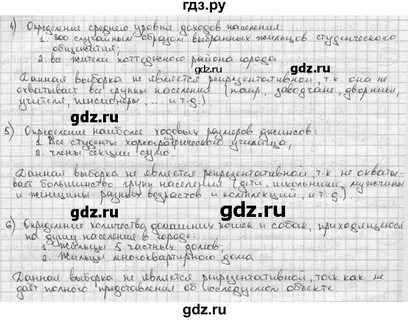 gdz.ru
4) Определение среднего уровня доходов населения:
1. 300 случайным образом выбранных жильцов студенческого
общежития;
2. все жители коттеджного района города
gdz.ru gdz.ru
Данная выборка не является репрезентативной, т.к. она не
охватывает все группы населения (напр, заводчане, дворники,
учителя, пенсионеры, ... и т.д.).
gdz.ru
5) Определение наиболее ходовых размеров джинсов:
1. Все студенты хореографического училища,
2. члены секции сумо.
gdz.ru gdz.ru
Данная выборка не является репрезентативной, т.к. не охваты-
вает большинство групп населения (дети, школьники, мужчины
и женщины разных возрастов и комплекций, и т.д.).
gdz.ru
6) Определение количества домашних кошек и собак, приходящиеся
на душу населения в городе:
1. Жильцы 5 частных домов,
2. Жильцы многоквартирного дома
gdz.ru gdz.ru
Данная выборка не является репрезентативной, так как не
даёт полного представления об исследуемом объекте.
gdz.ru